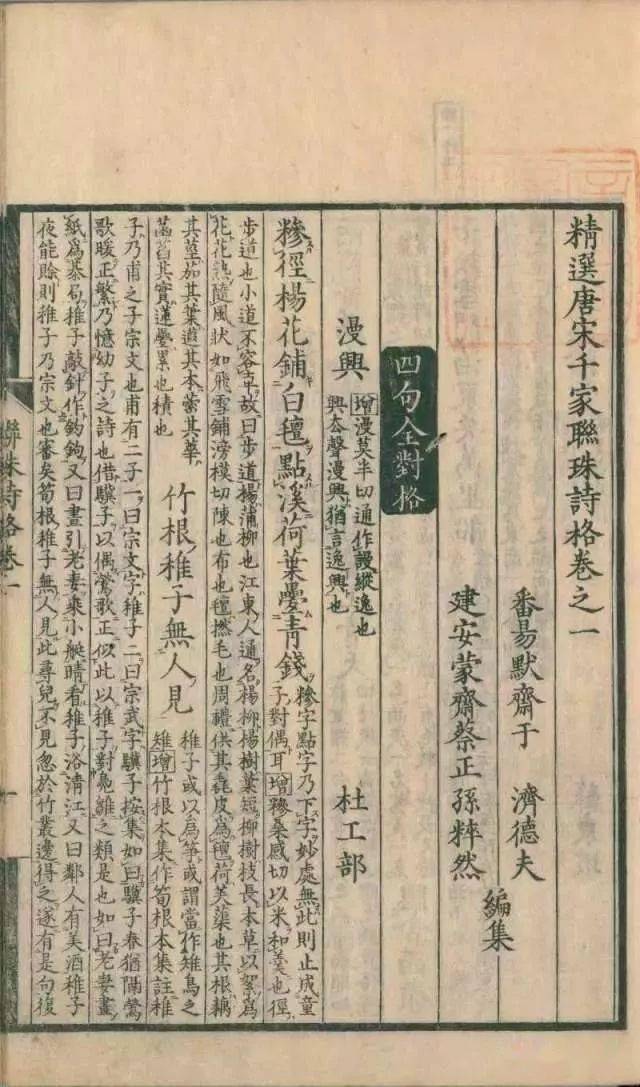 精選唐宋千家聯珠詩格卷之一
番昜默齋于　濟德夫
建安蒙齋蔡正孫粹然
編集
四句全對格
漫興
增漫莫半切通作謾縱逸也
興去聲漫興猶言逸興也
杜工部
糝徑楊花鋪白氊點溪荷葉疊青錢
糝字點字乃下字妙處無此則止成童
子對偶耳增糝桑感切以米和羹也徑
步道也小道不容車故曰步道楊蒲柳也江東人通名楊柳楊樹葉短柳樹枝長本草以絮爲
花花熟隨風狀如飛雪鋪滂模切陳也布也氊撚毛也周禮供其毳皮爲氊荷芙蕖也其根藕
其莖茄其葉蕸其本蔤其華
菡萏其實蓮疊累也積也
竹根稚子無人見
稚子或以爲笋或謂當作雉鳥之
雉增竹根本集作筍根本集註稚
子乃甫之子宗文也甫有二子一曰宗文字稚子二曰宗武字驥子按集如曰驥子春猶隔鶯
歌暖正繁乃憶幼子之詩也借驥子以偶鶯歌正似此以稚子對鳧雛之類是也如曰老妻畫
紙爲棊局稚子敲針作釣鉤又曰晝引老妻乘小艇晴看稚子浴清江又曰鄰人有美酒稚子
夜能賒則稚子乃宗文也審矣筍根稚子無人見此尋兒不見忽於竹叢邊得之遂有是句復
聯珠詩格卷一
一